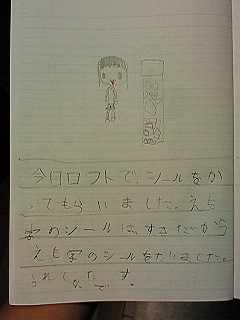 今日ロフトで、シールをか
ってもらいました。えも
字のシールは、すきだから
えも字のシールをかりました。
うれしかたです。